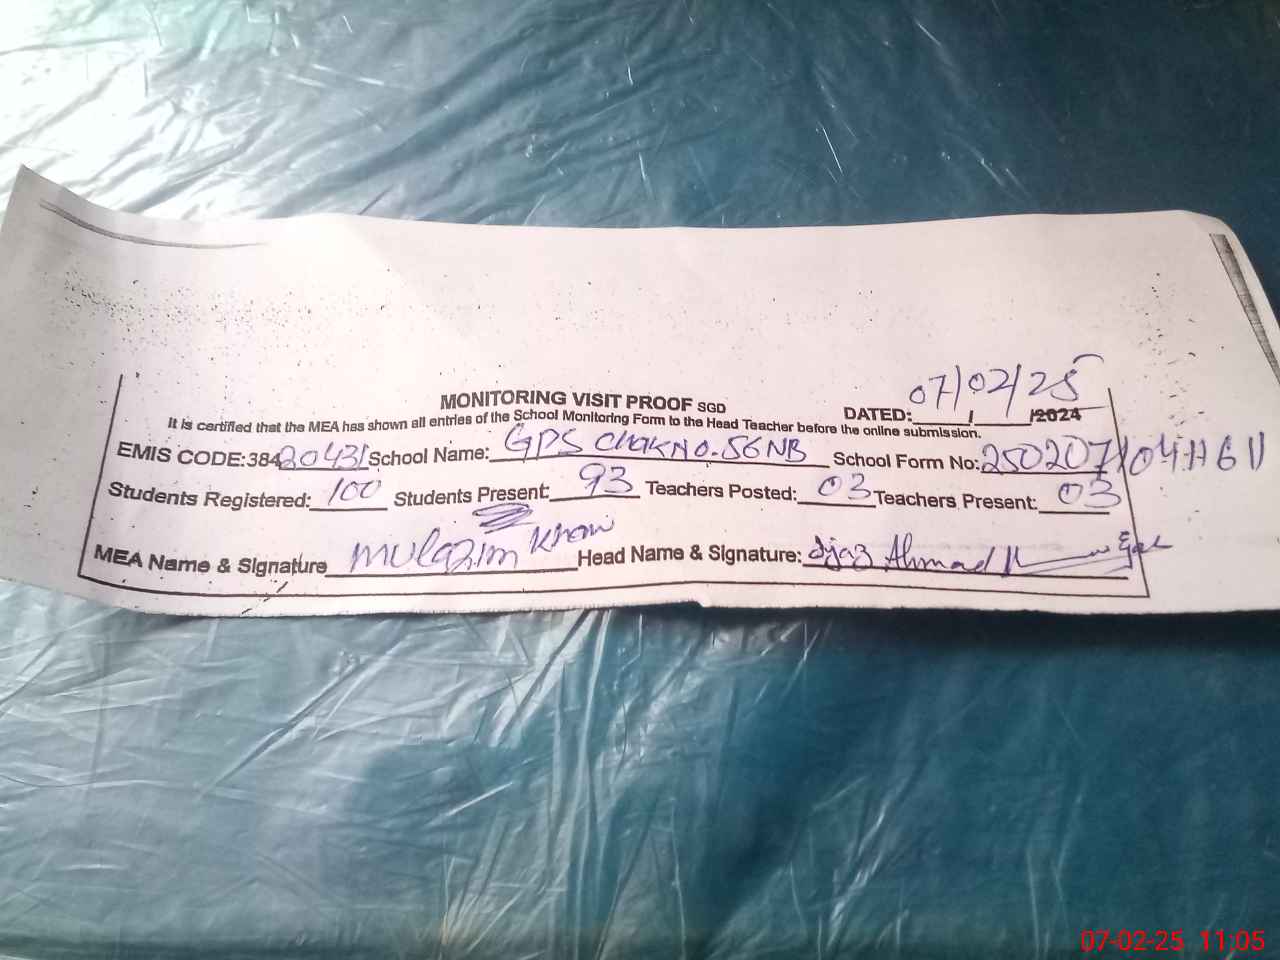 MONITORING VISIT PROOF SGD
DATED: 07/02/25 / /2024
It is certified that the MEA has shown all entries of the School Monitoring Form to the Head Teacher before the online submission.
EMIS CODE:38420431 School Name: GPS CHAK NO. 56 NB School Form No: 250207/04
Students Registered: 100 Students Present: 93 Teachers Posted: 03 Teachers Present: 03
MEA Name & Signature mulazim Khan Head Name & Signature: Ijaz Ahmad
07-02-25 11:05